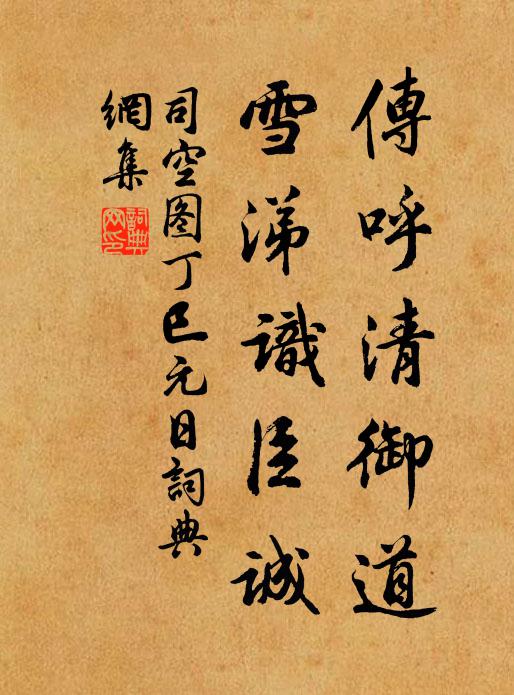 傳呼清御道
雪涕識臣誠
司空图丁巳元日詞典
網集
詞典
网印